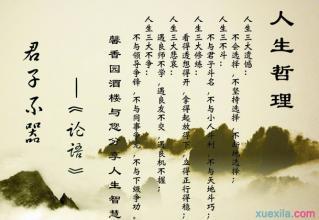 人生哲理
人生三大遗憾:
不会选择,不坚持选择,不断地选择;
人生三不斗:
不与君子斗名,不与小人斗利,不与天地斗巧;
人生三大修炼:
看得透想得开,拿得起放得下,立得正行得稳;
人生三大悲哀:
遇良师不学,遇良友不交,遇良机不握;
人生三大不争:
不与领导争锋,不与同事争宠,不与下级争功.
馨香园酒楼与您分享人生智慧
——《论语》
君子不器
xuexila.com